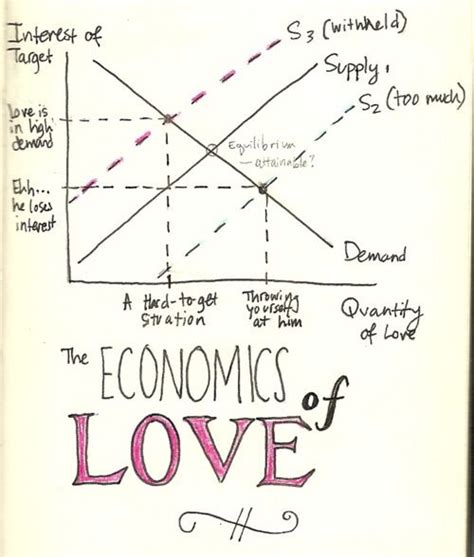 Interest of
Target
S3 (withheld)
Supply,
S2 (too much)
Love is
in high
demand
Equilibrium
— attainable?
Ehh...
he loses
interest
Demand
A Hard-to-get
Situation
Throwing
yourself
at him
Quantity
of Love
The ECONOMICS of
LOVE